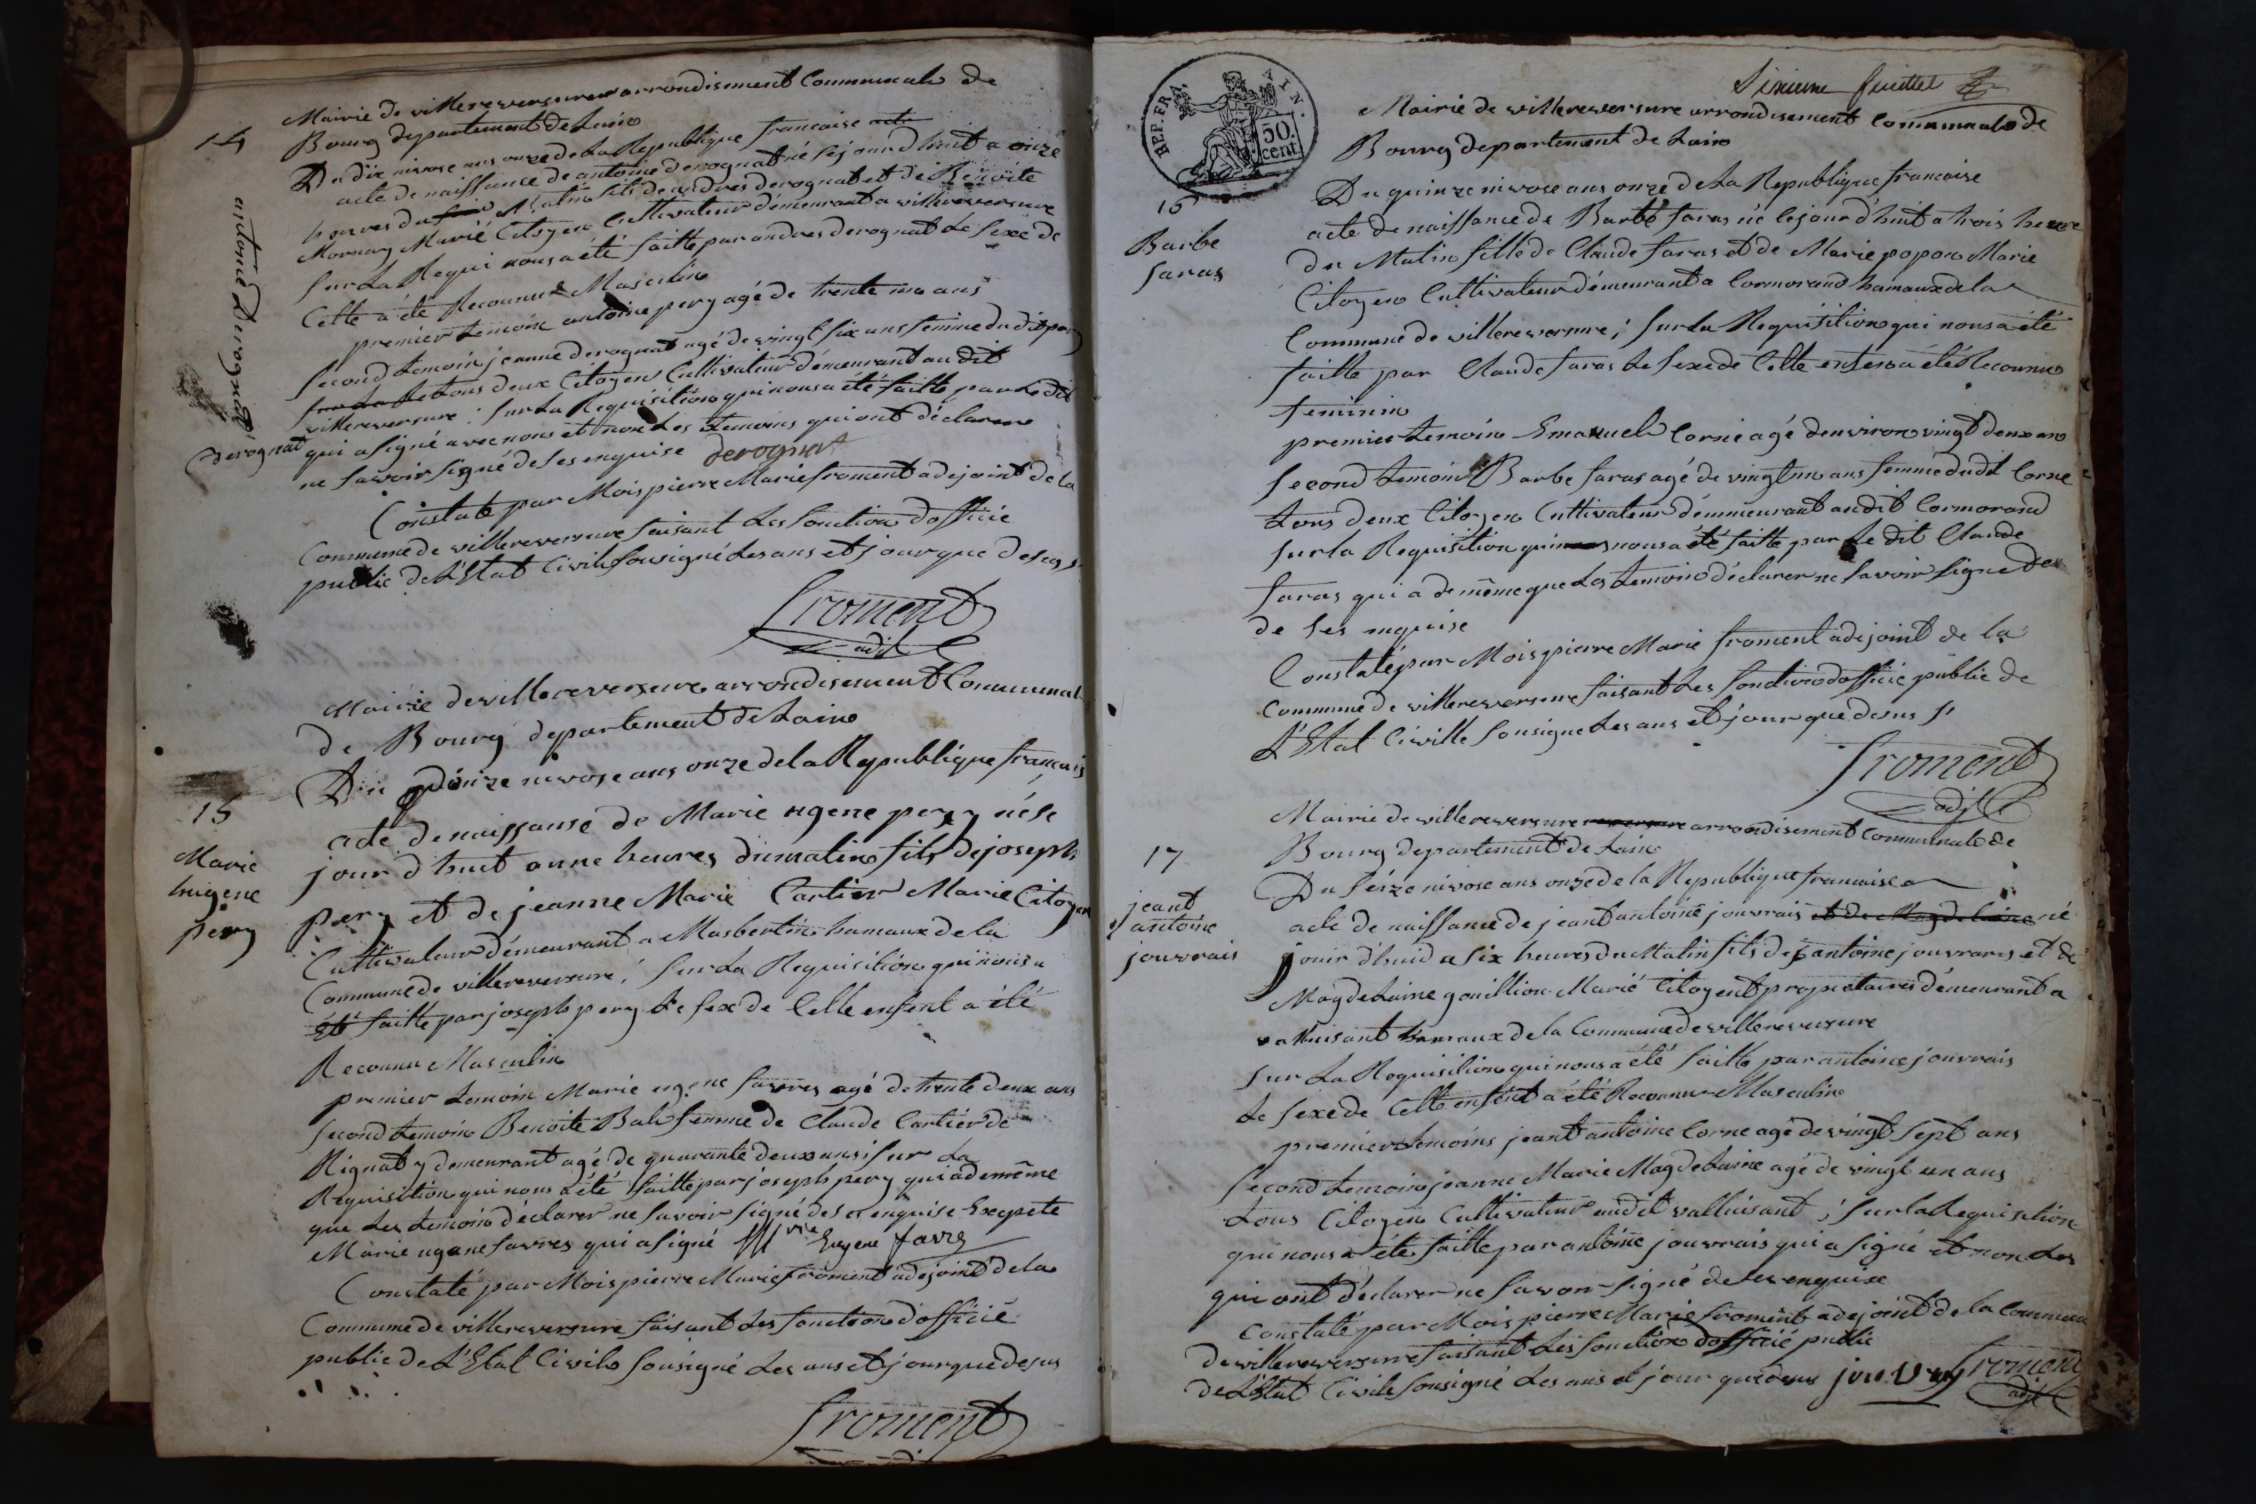 14
antoine Derognat
Mairie de villereversure arrondisement Communale de
Bourg departement de Lain
Du dix nivose ans onze de La Republique francaise acte
acte de naissance de antoine derognat né se jourd huit a onze
heures du soir Matin fils de andres derognat et de Benoite
Mornay Marié Citoyen Cultivateur démeurant a villereversure
sur La Requi nous a été faitte par andres derognat Le sexe de
Celle a été Reconnue Masculin
premier temoin antoine pery agé de trente un ans
second temoin jeanne derognat agé de vingt six ans femme du dit pery
tous deux Citoyens Cultivateur démeurant au dit
villereversure : sur La Requisition qui nous a été faitte par Le dit
Derognat qui a signé avec nous et non Les temoins qui ont déclarer
ne savoir signé de ses enquise derognat
Constaté par Mois pierre Marie froment adejoint de la
Commune de villereversure faisant Les fonction d'officié
public de L'Etat Civile sousigné Les ans et jour que desus
froment
adjt
Mairie de villereversure arrondisement Communal
de Bourg departement de Lain
Du quinze nivose ans onze de la Republique francais
15
Marie
hugene
pery
acte de naissanse de Marie ugene pery né se
jour d huit onne heures du matin fils de joseph
pery et de jeanne Marie Cartier Marie Citoyen
Cultivateur démeurant a Masbertin hamaux de la
Commune de villereversure ; sur La Requisition qui nous a
été faitte par joseph pery Le sex de Celle enfent a été
Reconnu Masculin
premier temoin Marie ugene favres agé de trente deux ans
second temoin Benoite Bali femme de Claude Cartier de
Rignat y demeurant agé de quarante deux ans ; sur La
Requisition qui nous a été faitte par joseph pery qui a de même
que Les temoin déclarer ne savoir signé de ses enquise Exepete
Marie ugene favres qui a signé M vie Eugene favre
Constaté par Mois pierre Marie froment adejoint de la
Commune de villereversure faisant Les fonction d'officié
public de L'Etat Civile sousigné Les ans et jour que desus
froment
REP. FRA. AIN.
50.
cent.
Sixieme feuillet
Mairie de villereversure arrondisement Communale de
Bourg departement de Lain
Du quinze nivose ans onze de La Republique francaise
16
Barbe
faras
acte de naissance de Barbe faras né se jour d'huit a trois heure
du Matin fille de Claude faras et de Marie popon Marie
Citoyen Cultivateur démeurant a Cormorand hamaux de la
Commune de villereversure ; sur La Requisition qui nous a été
faitte par Claude faras Le sexe de Celle enfen a été Reconnue
feminin
premier temoin Emanuel Corne agé d'environ vingt deux ans
second temoin Barbe faras agé de vingt un ans femme du dit Corne
tous deux Citoyen Cultivateur démeurant au dit Cormorand
sur la Requisition qui nous a été faitte par Le dit Claude
faras qui a de même que Les temoin déclarer ne savoir signe de
de ses enquise
Constaté par Mois pierre Marie froment adejoint de la
Commune de villereversure faisant Les fonction d'officié public de
L'Etat Civille sousigne Les ans et jour que desus
froment
adjt
Mairie de villereversure reversure arrondisement Communale de
Bourg departement de Lain
17
jeant
antoine
jouvrais
Du seize nivose ans onze de la Republique francaise
acte de naissance de jeant antoine jouvrais et de Magdelaine né
jour d'huid a six heures du Matin fils de antoine jouvrais et de
Magdelaine gouillion Marié Citoyent propietaires démeurant a
valluisant hamaux de la Commune de villereversure
sur La Requisition qui nous a été faitte par antoine jouvrais
Le sexe de Celle enfent a été Reconnu Masculin
premier temoins jeant antoine Corne age de vingt sept ans
second temoin jeanne Marie Magdelaine agé de vingt un ans
tous Citoyen Cultivateur audit valluisant ; sur la Requisition
qui nous a été faitte par antoine jouvrais qui a signé et non Les
qui ont déclarer ne savoir signé de ses enquise
Constaté par Mois pierre Marie froment adejoint de la Commune
de villereversure faisant Les fonction d'officié public
de L'Etat Civile sousigné Les ans et jour que desus jouvray froment
adjt